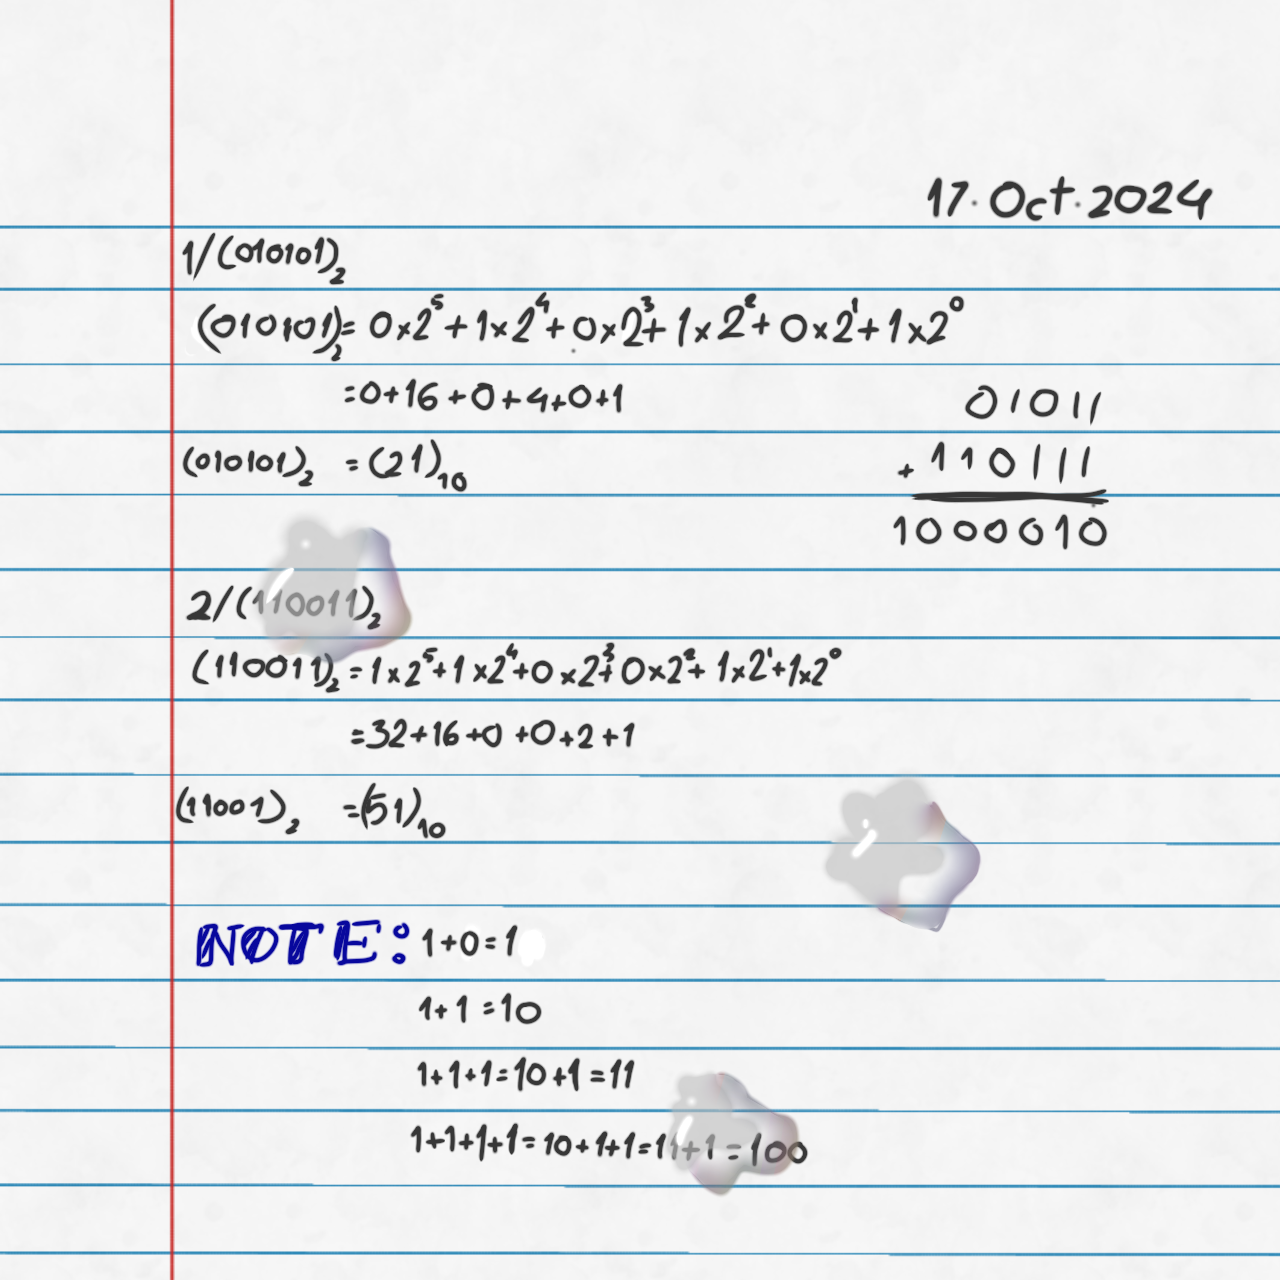 17. Oct. 2024
1/(010101)₂
(010101)₂= 0×2⁵+1×2⁴+0×2³+1×2²+0×2¹+1×2⁰
=0+16+0+4+0+1
(010101)₂ =(21)₁₀
01011
+110111
1000010
2/(110011)₂
(110011)₂=1×2⁵+1×2⁴+0×2³+0×2²+1×2¹+1×2⁰
=32+16+0+0+2+1
(11001)₂ =(51)₁₀
NOTE: 1+0=1
1+1=10
1+1+1=10+1=11
1+1+1+1=10+1+1=11+1=100